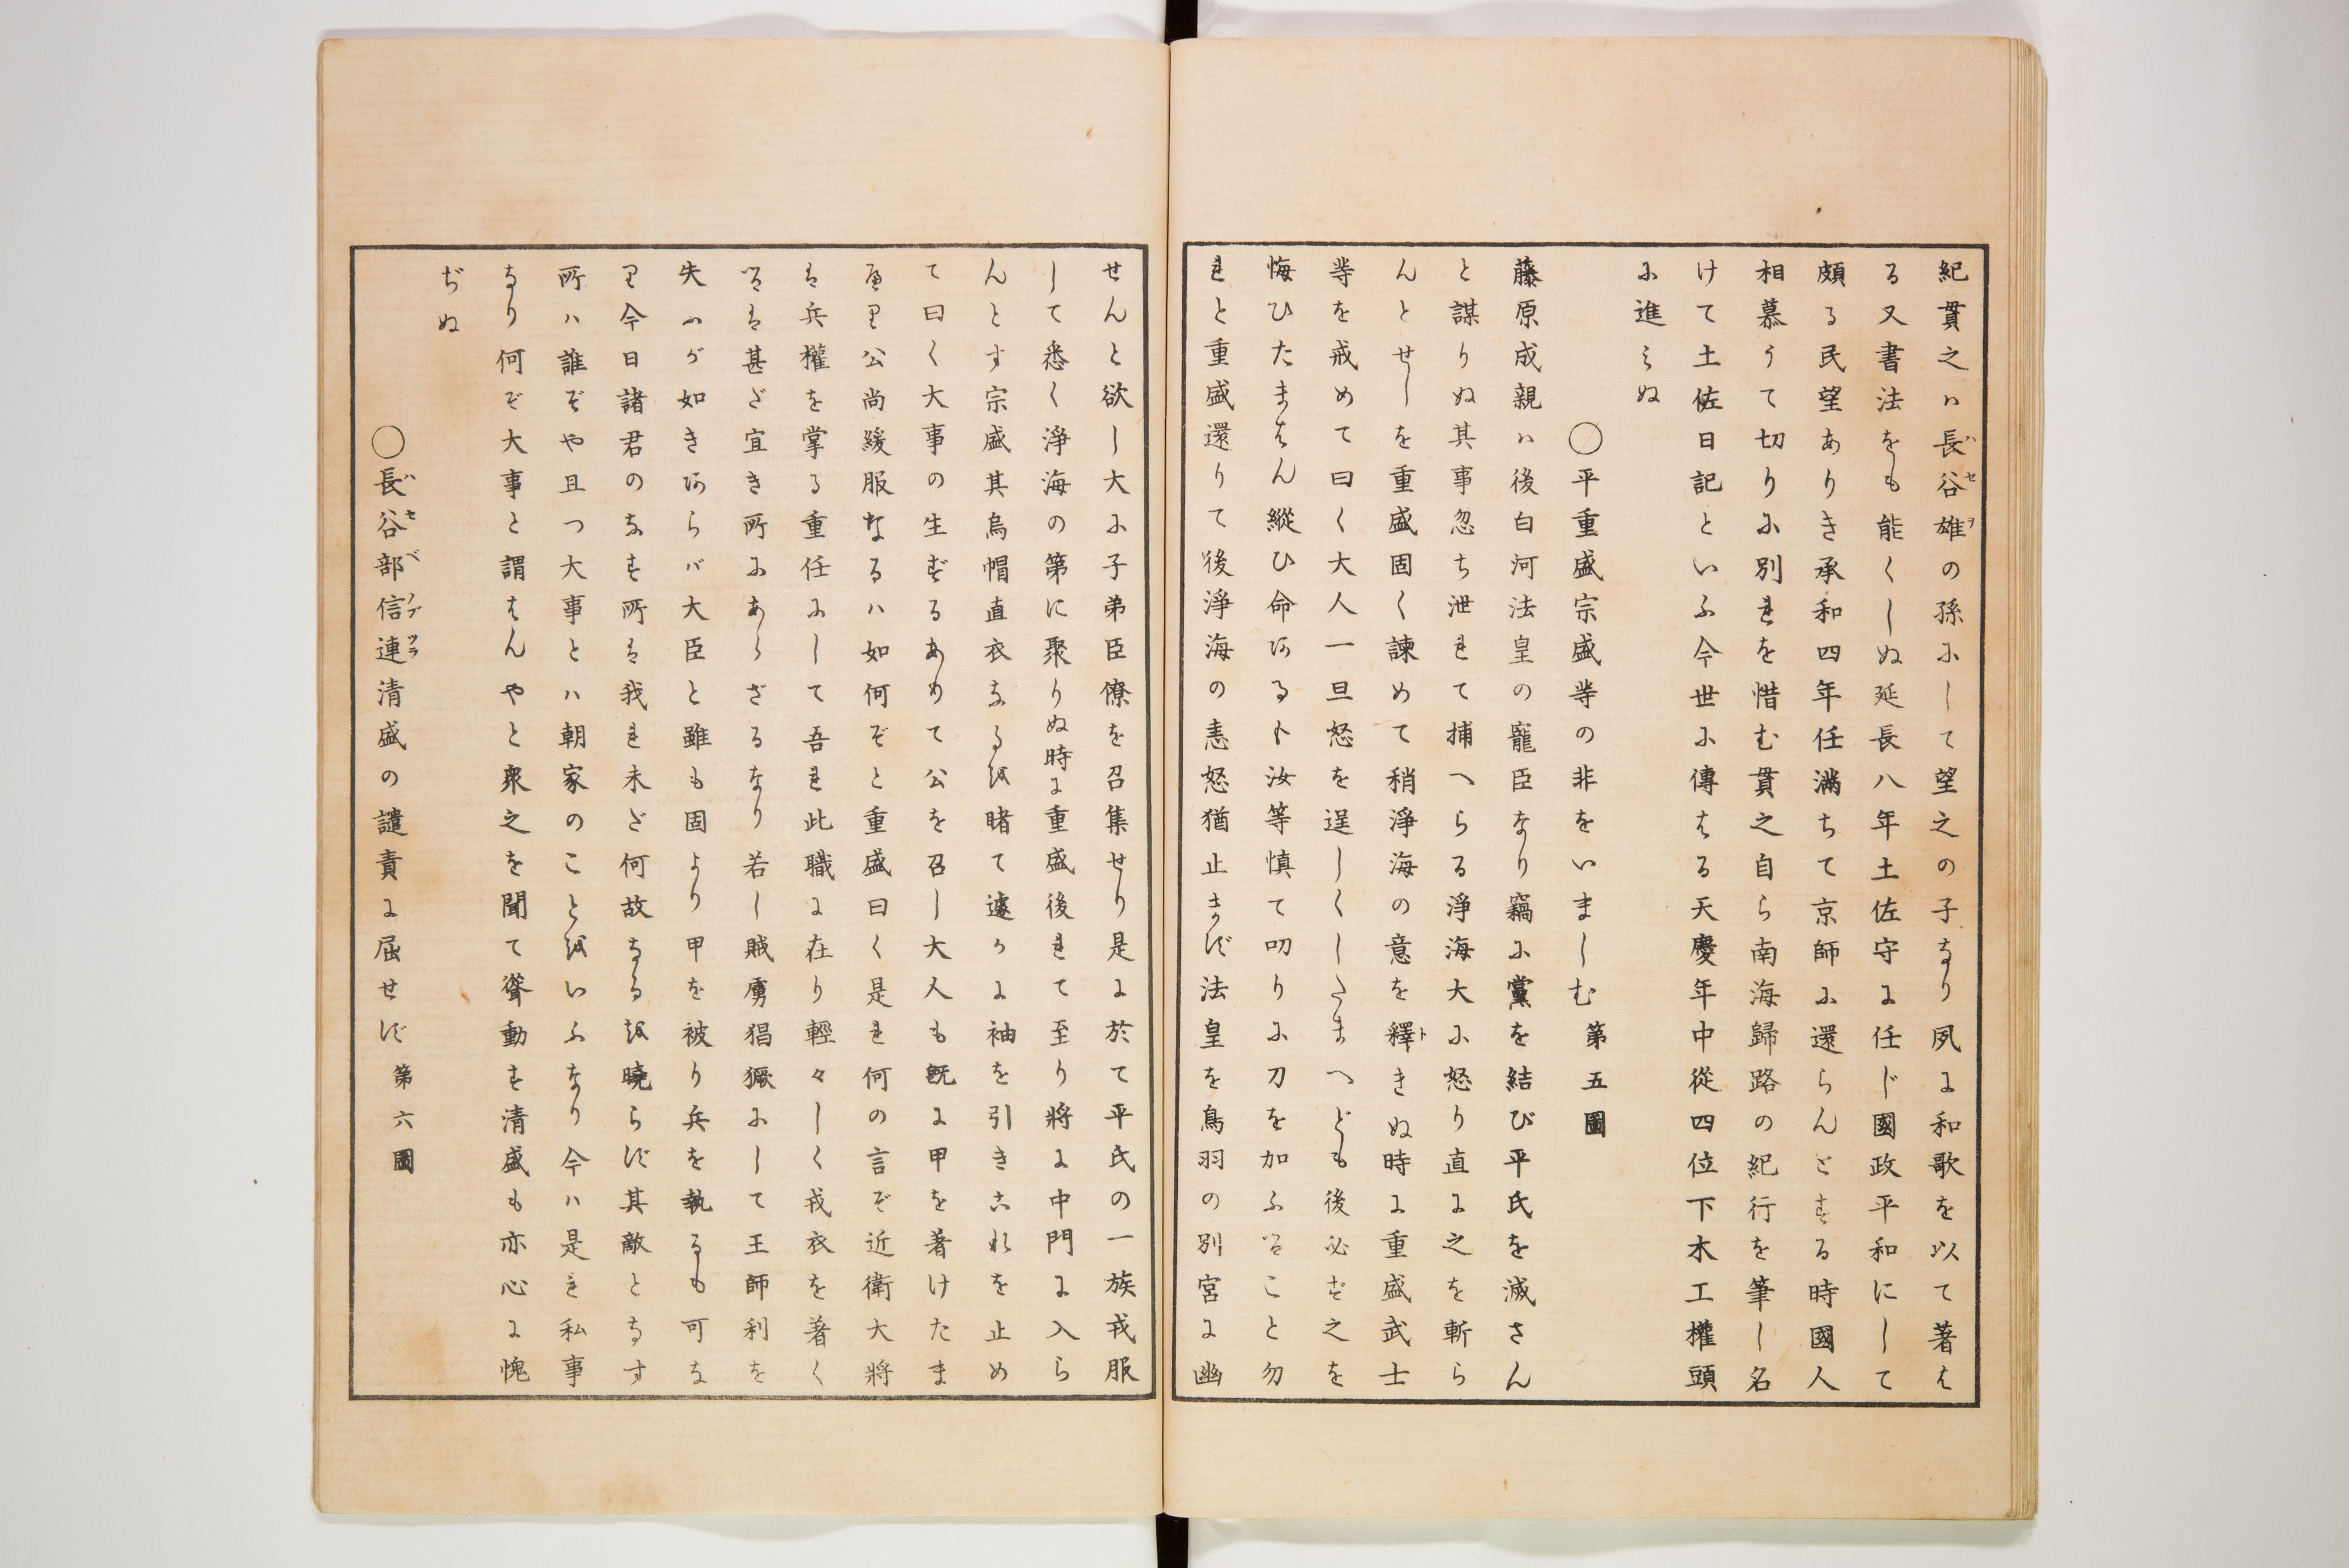 紀貫之ハ長谷雄の孫にして望之の子なり夙に和歌を以て著は
る又書法をも能くしぬ延長八年土佐守に任じ國政平和にして
頗る民望ありき承和四年任滿ちて京師に還らんとする時國人
相慕うて切りに別れを惜む貫之自ら南海歸路の紀行を筆し名
けて土佐日記といふ今世に傳はる天慶年中從四位下木工權頭
に進みぬ
○平重盛宗盛等の非をいましむ 第五圖
藤原成親ハ後白河法皇の寵臣なり竊に黨を結び平氏を滅さん
と謀りぬ其事忽ち泄れて捕へらる淨海大に怒り直に之を斬ら
んとせしを重盛固く諫めて稍淨海の意を釋きぬ時に重盛武士
等を戒めて曰く大人一旦怒を逞しくしたまへども後必ず之を
悔ひたまはん縱ひ命ある𪜈汝等慎て叨りに刀を加ふることと勿
れと重盛還りて後淨海の恚怒猶止まず法皇を鳥羽の別宮に幽
せんと欲し大に子弟臣僚を召集せり是に於て平氏の一族戎服
して悉く淨海の第に聚りぬ時に重盛後れて至り將に中門に入ら
んとす宗盛其烏帽直衣なるを睹て遽かに袖を引きこれを止め
て曰く大事の生ずるありて公を召し大人も既に甲を著けたま
へり公尚緩服なるハ如何ぞと重盛曰く是れ何の言ぞ近衛大將
は兵權を掌る重任にして吾れ此職に在り輕々しく戎衣を著く
るは甚だ宜き所にあらざるなり若し賊虜猖獗にして王師利を
失ふが如きあらバ大臣と雖も固より甲を被り兵を執るも可な
り今日諸君のなす所は我れ未だ何故なるを曉らず其敵となす
所ハ誰ぞや且つ大事とハ朝家のことをいふなり今ハ是れ私事
なり何ぞ大事と謂はんやと衆之を聞て聳動す清盛も亦心に愧
ぢぬ
○長谷部信連清盛の譴責に屈せず 第六圖